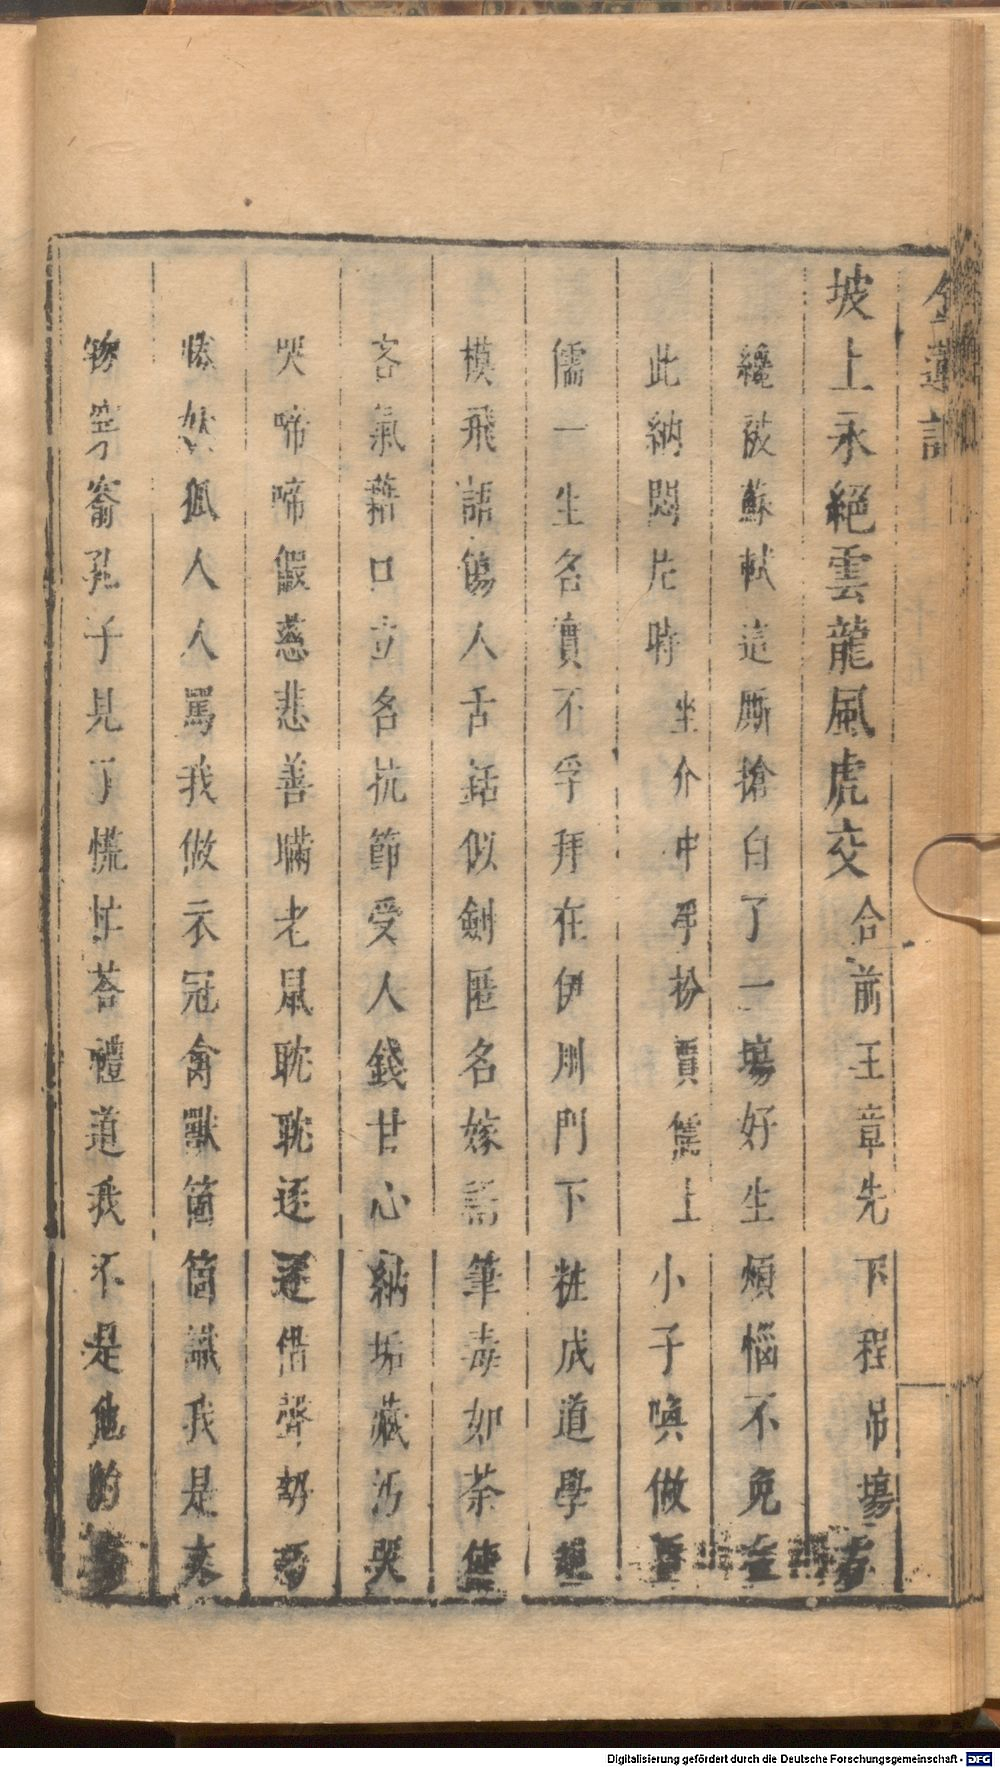 金蓮記
坡上永絕雲龍風虎交合前王章先下程吊塲
纔被蘇軾這厮搶白了一塲好生煩惱不免在
此納悶片時坐介中淨扮賈儒上小子喚做賈
儒一生名實不孚拜在伊川門下粧成道學規
模飛語傷人舌銛似劍匿名嫁謡筆毒如荼使
客氣藉口立名抗節受人錢甘心納垢藏汚哭
哭啼啼假慈悲善瞞老鼠耽耽逐逐借聲勢
狐人人罵我做衣冠禽獸箇箇識我是來
孔子見了慌忙荅禮道我不是他的
Digitalisierung gefördert durch die Deutsche Forschungsgemeinschaft - DFG